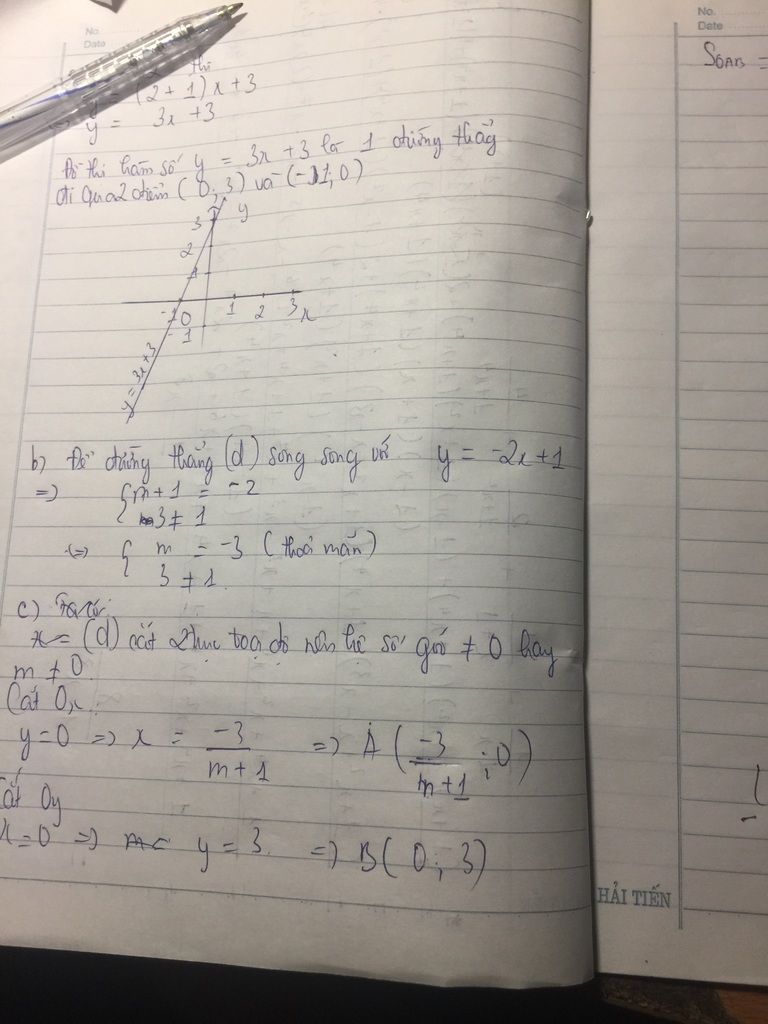 No.
Date
thì
y = (2 + 1)x + 3
⇒ y = 3x + 3
Đồ thị hàm số y = 3x + 3 là 1 đường thẳng
đi qua 2 điểm (0; 3) và (-1; 0)
y
3
2
1
-1 0 1 2 3 x
-1
y = 3x + 3
b) Để đường thẳng (d) song song với y = -2x + 1
=> { m + 1 = -2
3 ≠ 1
(=) { m = -3 (thoả mãn)
3 ≠ 1.
c) Ta có:
(d) cắt 2 trục toạ độ nên hệ số góc ≠ 0 hay
m ≠ 0.
Cắt Ox
y = 0 => x = -3 / (m + 1) => A (-3 / (m + 1); 0)
Cắt Oy
x = 0 => y = 3. => B (0; 3)
No.
Date
SOAB =
HẢI TIẾN